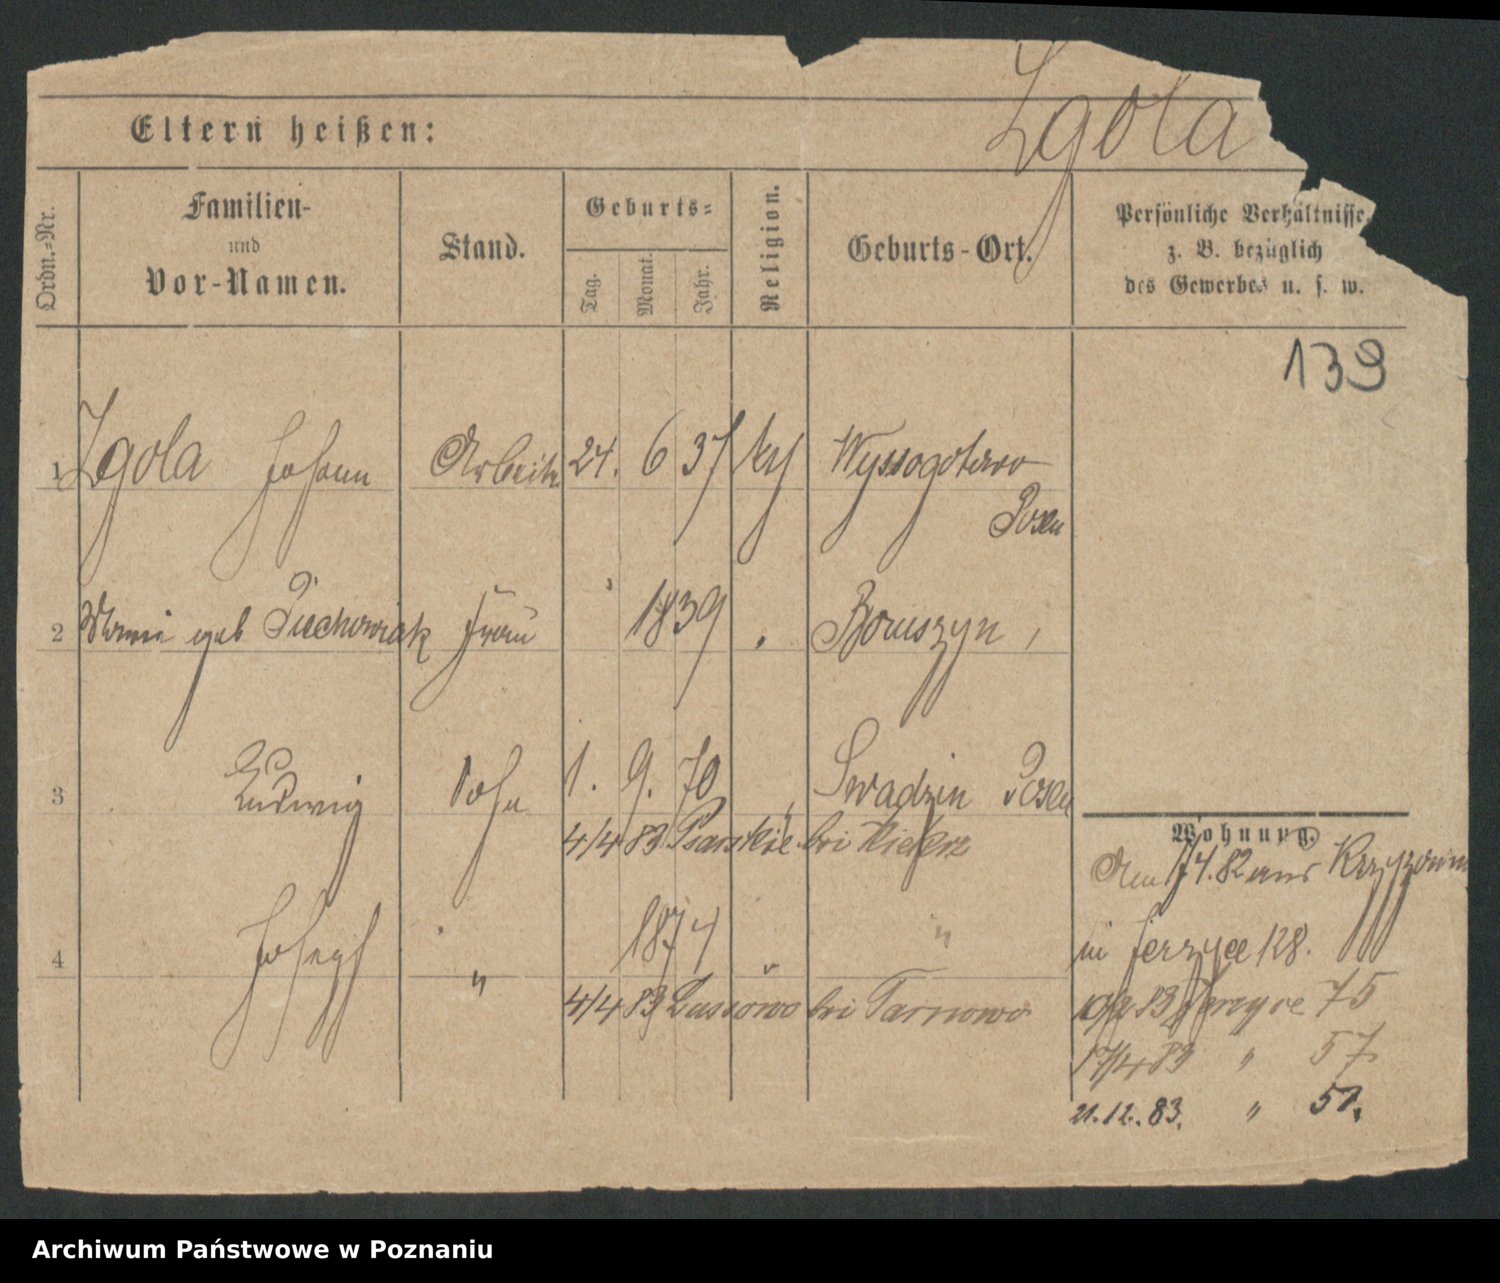 Zgola
Eltern heißen:
Ordn.-Nr.
Familien-
und
Vor-Namen.
Stand.
Geburts-
Tag.
Monat.
Jahr.
Religion.
Geburts-Ort.
Persönliche Verhältnisse
z. B. bezüglich
des Gewerbes u. s. w.
139
1 Zgola Johann Arbeitr 24. 6 37 kth Wyssogotowo
Posen
2 Maria geb Piechowiak Frau 1839 Boruszyn
3 Ludwig Sohn 1. 9. 70 Swadzin Posen
4/4 83 Psarskie bei Kiekrz
4 Joseph " 1874 "
4/4 83 Lussowo bei Tarnowo
Wohnung.
Am 4.82 aus
in Jerzyce 128.
83 Jerzyce 75
17/4 83 " 57
21.12.83. " 51.
Archiwum Państwowe w Poznaniu